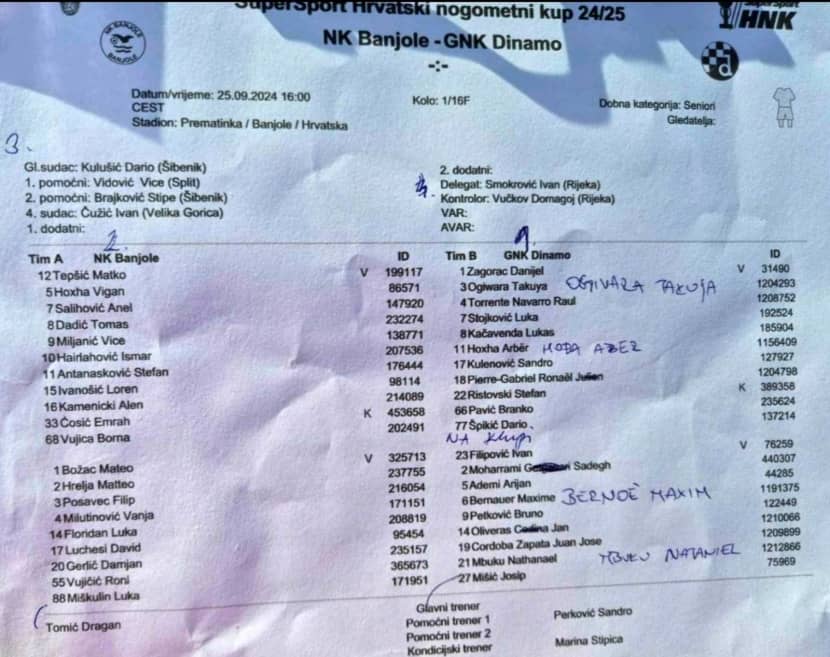 SuperSport Hrvatski nogometni kup 24/25
HNK
NK BANJOLE
BANJOLE
NK Banjole - GNK Dinamo
-:-
Datum/vrijeme: 25.09.2024 16:00
CEST
Stadion: Prematinka / Banjole / Hrvatska
Kolo: 1/16F
Dobna kategorija: Seniori
Gledatelja:
3.
Gl.sudac: Kulušić Dario (Šibenik)
1. pomoćni: Vidović Vice (Split)
2. pomoćni: Brajković Stipe (Šibenik)
4. sudac: Čužić Ivan (Velika Gorica)
1. dodatni:
2. dodatni:
Delegat: Smokrović Ivan (Rijeka)
Kontrolor: Vučkov Domagoj (Rijeka)
VAR:
AVAR:
2.
Tim A NK Banjole ID
12 Tepšić Matko V 199117
5 Hoxha Vigan 86571
7 Salihović Anel 147920
8 Dadić Tomas 232274
9 Miljanić Vice 138771
10 Hairlahović Ismar 207536
11 Antanasković Stefan 176444
15 Ivanošić Loren 98114
16 Kamenicki Alen 214089
33 Ćosić Emrah K 453658
68 Vujica Borna 202491
1 Božac Mateo V 325713
2 Hrelja Matteo 237755
3 Posavec Filip 216054
4 Milutinović Vanja 171151
14 Floridan Luka 208819
17 Luchesi David 95454
20 Gerlič Damjan 235157
55 Vujičić Roni 365673
88 Miškulin Luka 171951
Tomić Dragan
1.
Tim B GNK Dinamo ID
1 Zagorac Danijel V 31490
3 Ogiwara Takuya OGIVARA TAKUJA 1204293
4 Torrente Navarro Raul 1208752
7 Stojković Luka 192524
8 Kačavenda Lukas 185904
11 Hoxha Arbër HODA ABER 1156409
17 Kulenović Sandro 127927
18 Pierre-Gabriel Ronaël Julien 1204798
22 Ristovski Stefan K 389358
66 Pavić Branko 235624
77 Špikić Dario 137214
NA klupi
23 Filipović Ivan V 76259
2 Moharrami Sadegh 440307
5 Ademi Arijan 44285
6 Bernauer Maxime BERNOE MAXIM 1191375
9 Petković Bruno 122449
14 Oliveras Codina Jan 1210066
19 Cordoba Zapata Juan Jose 1209899
21 Mbuku Nathanael MBUKU NATANIEL 1212866
27 Mišić Josip 75969
Glavni trener Perković Sandro
Pomoćni trener 1
Pomoćni trener 2 Marina Stipica
Kondicijski trener